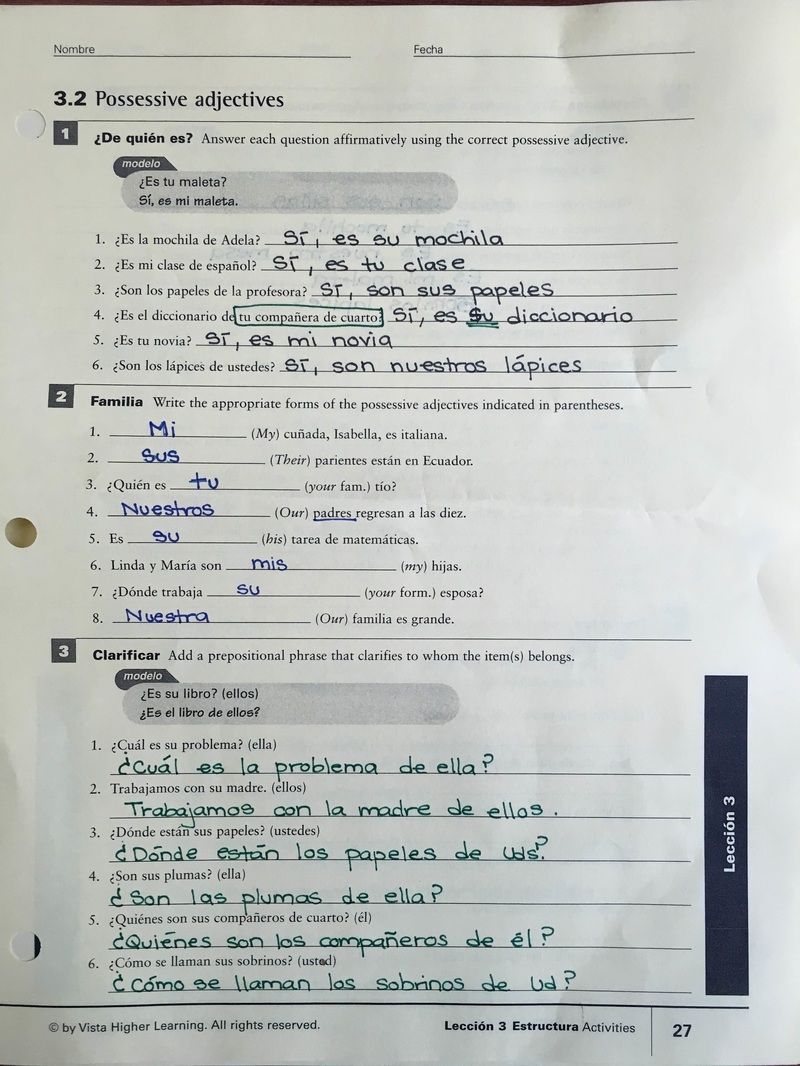 Nombre Fecha
3.2 Possessive adjectives
1 ¿De quién es? Answer each question affirmatively using the correct possessive adjective.
modelo
¿Es tu maleta?
Sí, es mi maleta.
1. ¿Es la mochila de Adela? Sí, es su mochila
2. ¿Es mi clase de español? Sí, es tu clase
3. ¿Son los papeles de la profesora? Sí, son sus papeles
4. ¿Es el diccionario de tu compañera de cuarto? Sí, es su diccionario
5. ¿Es tu novia? Sí, es mi novia
6. ¿Son los lápices de ustedes? Sí, son nuestros lápices
2 Familia Write the appropriate forms of the possessive adjectives indicated in parentheses.
1. Mi (My) cuñada, Isabella, es italiana.
2. Sus (Their) parientes están en Ecuador.
3. ¿Quién es tu (your fam.) tío?
4. Nuestros (Our) padres regresan a las diez.
5. Es su (his) tarea de matemáticas.
6. Linda y María son mis (my) hijas.
7. ¿Dónde trabaja su (your form.) esposa?
8. Nuestra (Our) familia es grande.
3 Clarificar Add a prepositional phrase that clarifies to whom the item(s) belongs.
modelo
¿Es su libro? (ellos)
¿Es el libro de ellos?
1. ¿Cuál es su problema? (ella)
¿Cuál es la problema de ella?
2. Trabajamos con su madre. (ellos)
Trabajamos con la madre de ellos.
3. ¿Dónde están sus papeles? (ustedes)
¿Dónde están los papeles de Uds?
4. ¿Son sus plumas? (ella)
¿Son las plumas de ella?
5. ¿Quiénes son sus compañeros de cuarto? (él)
¿Quiénes son los compañeros de él?
6. ¿Cómo se llaman sus sobrinos? (usted)
¿Cómo se llaman los sobrinos de Ud?
Lección 3
© by Vista Higher Learning. All rights reserved. Lección 3 Estructura Activities 27